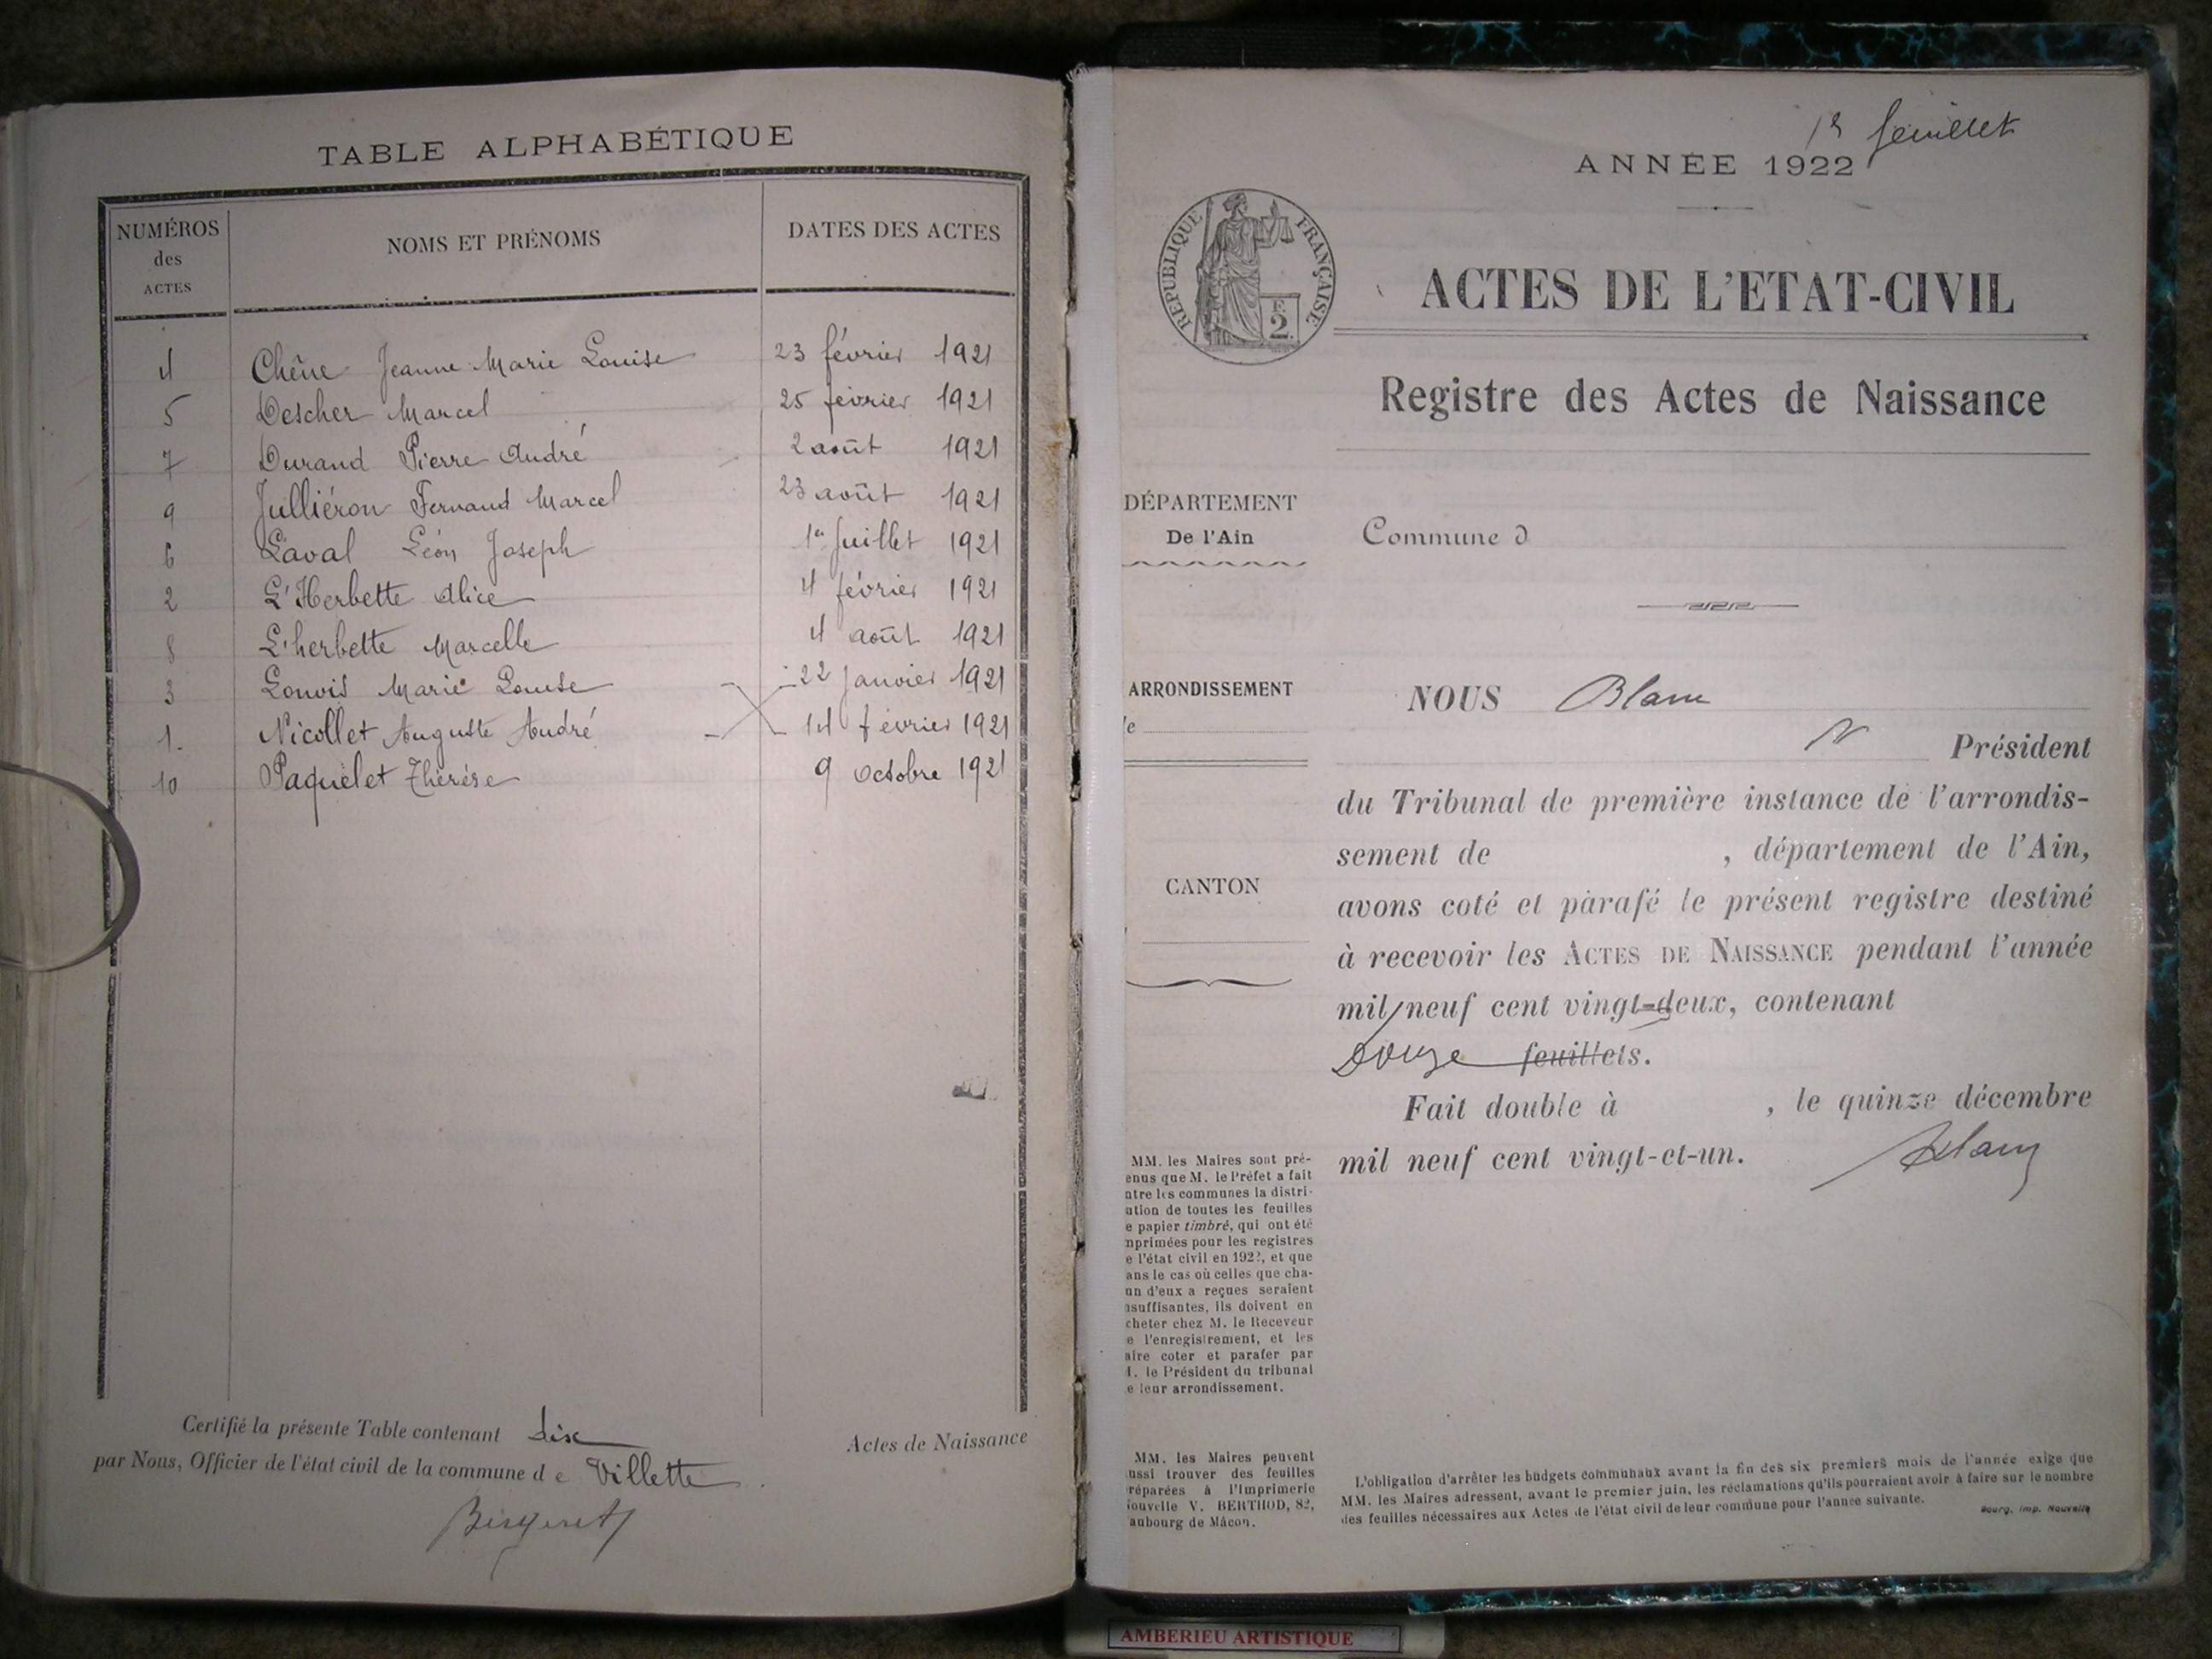 TABLE ALPHABÉTIQUE
NUMÉROS des ACTES NOMS ET PRÉNOMS DATES DES ACTES
4 Chêne Jeanne Marie Louise 23 février 1921
5 Descher Marcel 25 février 1921
7 Durand Pierre André 2 août 1921
9 Julliéron Fernand Marcel 23 août 1921
6 Laval Léon Joseph 1er Juillet 1921
2 L'Herbette Alice 4 février 1921
8 L'herbette Marcelle 4 août 1921
3 Marie Louise 22 Janvier 1921
1. Nicollet Auguste André 14 février 1921
10 Paquelet Thérèse 9 Octobre 1921
Certifié la présente Table contenant dix Actes de Naissance
par Nous, Officier de l'état civil de la commune d e Villette.
1r feuillet
ANNÉE 1922
RÉPUBLIQUE FRANÇAISE
F. 2.
ACTES DE L'ETAT-CIVIL
Registre des Actes de Naissance
DÉPARTEMENT
De l'Ain
Commune d
ARRONDISSEMENT
CANTON
NOUS Blanc
Président
du Tribunal de première instance de l'arrondis-
sement de , département de l'Ain,
avons coté et parafé le présent registre destiné
à recevoir les ACTES DE NAISSANCE pendant l'année
mil neuf cent vingt-deux, contenant
Douze feuillets.
Fait double à , le quinze décembre
mil neuf cent vingt-et-un.
MM. les Maires sont pré-
enus que M. le Préfet a fait
ntre les communes la distri-
ution de toutes les feuilles
e papier timbré, qui ont été
nprimées pour les registres
e l'état civil en 1922, et que
ans le cas où celles que cha-
un d'eux a reçues seraient
nsuffisantes, ils doivent en
cheter chez M. le Receveur
e l'enregistrement, et les
aire coter et parafer par
I. le Président du tribunal
e leur arrondissement.
MM. les Maires peuvent
ussi trouver des feuilles
réparées à l'Imprimerie
ouvelle V. BERTHOD, 82,
aubourg de Mâcon.
L'obligation d'arrêter les budgets communaux avant la fin des six premiers mois de l'année exige que
MM. les Maires adressent, avant le premier juin, les réclamations qu'ils pourraient avoir à faire sur le nombre
des feuilles nécessaires aux Actes de l'état civil de leur commune pour l'année suivante.
Bourg, Imp. Nouvelle
AMBERIEU ARTISTIQUE